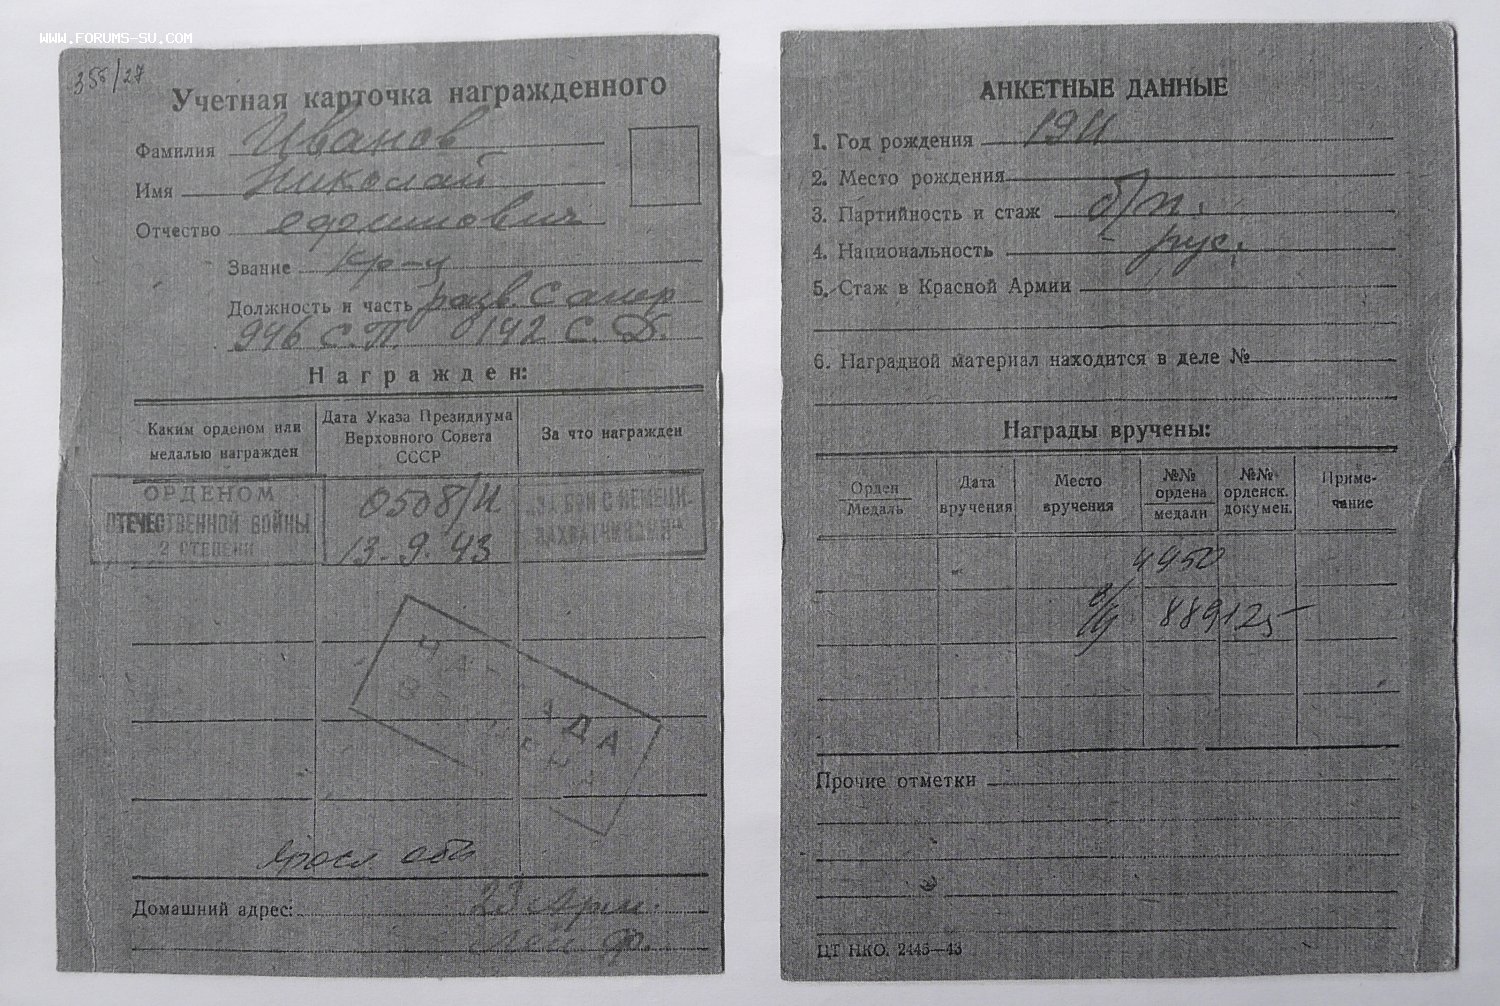 WWW.FORUMS-SU.COM
355/27
Учетная карточка награжденного
Фамилия Иванов
Имя Николай
Отчество Ефимович
Звание кр-ц
Должность и часть разв. Сапер
946 С.П. 142 С.Д.
Награжден:
Каким орденом или медалью награжден
Дата Указа Президиума Верховного Совета СССР
За что награжден
ОРДЕНОМ
ОТЕЧЕСТВЕННОЙ ВОЙНЫ
2 СТЕПЕНИ
0508/Н
13-9.43
Яросл. обл
Домашний адрес: 23 Арм.
Лен ф.
АНКЕТНЫЕ ДАННЫЕ
1. Год рождения 1911
2. Место рождения
3. Партийность и стаж б/п.
4. Национальность рус.
5. Стаж в Красной Армии
6. Наградной материал находится в деле №
Награды вручены:
Орден
Медаль
Дата вручения
Место вручения
№№ ордена медали
№№ орденск. докумен.
Приме-
чание
4450
889125
Прочие отметки
ЦТ НКО. 2445—43